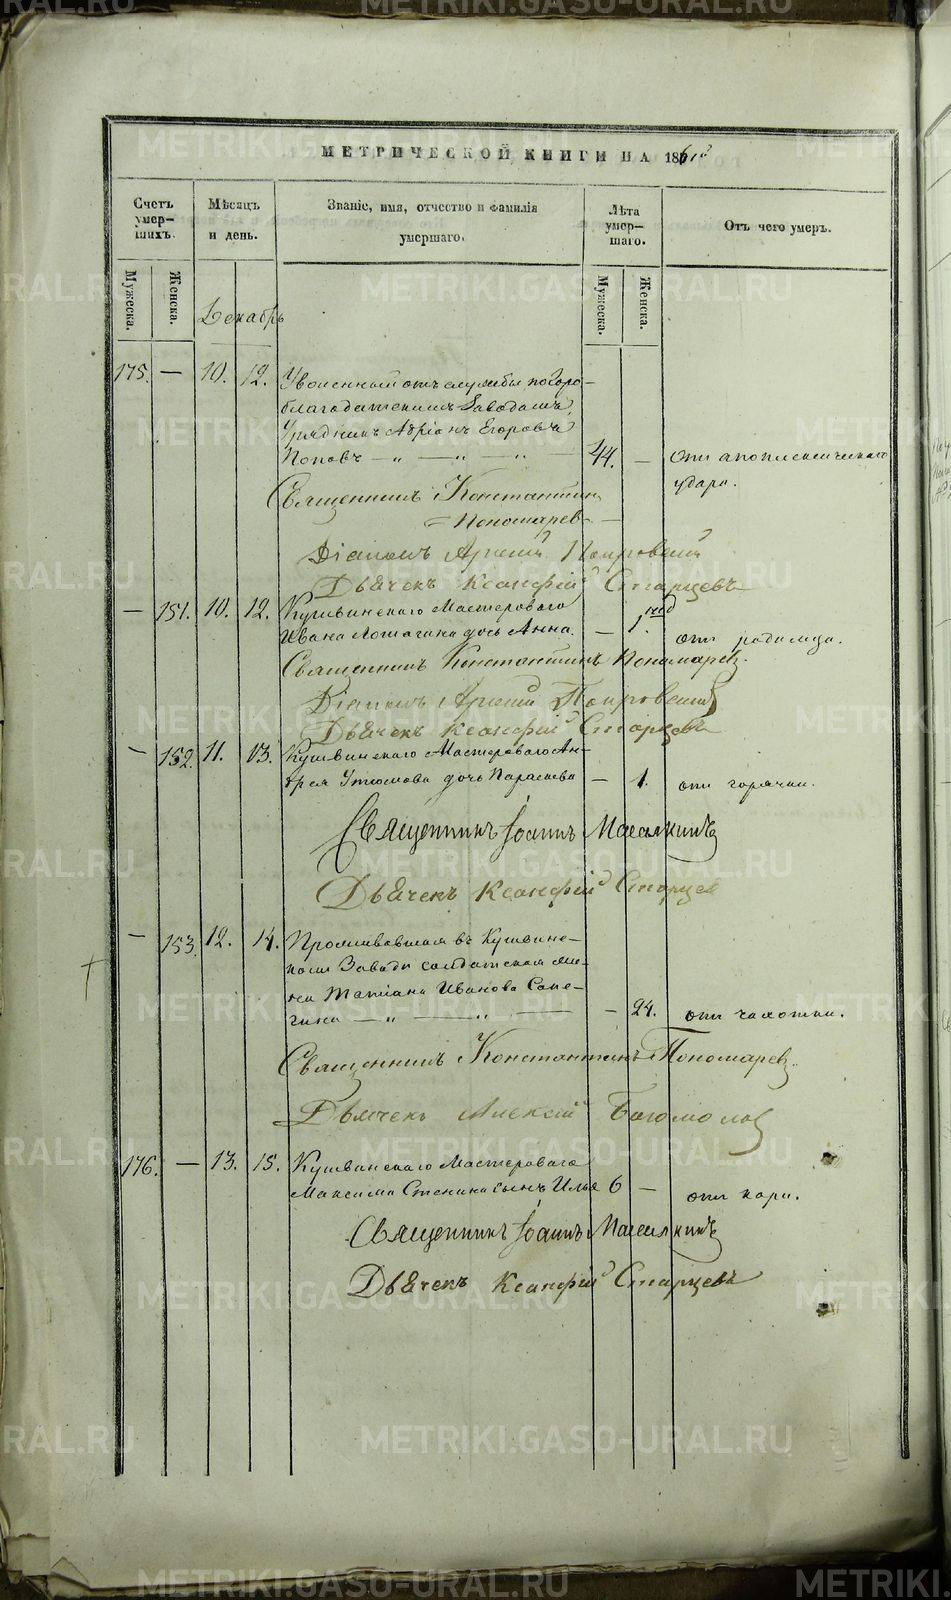 МЕТРИЧЕСКОЙ КНИГИ НА 1861й
Счетъ умершихъ.
Мѣсяцъ и день.
Званіе, имя, отчество и фамилія умершаго.
Лѣта умершаго.
Отъ чего умеръ.
Мужеска.
Женска.
Мужеска.
Женска.
Декабрь
175. — 10. 12. Уволенный отъ службы по Горо-
благодатскимъ Заводамъ,
Урядникъ Адріанъ Егоровъ
Поповъ — „ — „ — „ — 44. — отъ апоплексическаго
удара.
Священникъ Константинъ
Пономарев
Діаконъ Арсеній Покровскій
Дьячекъ Ксанфій Старцевъ
— 151. 10. 12. Кушвинскаго Мастероваго
Ивана Лотагина дочь Анна. — 1. нед отъ родимца.
Священникъ Константинъ Пономарев.
Діаконъ Арсеній Покровскій
Дьячекъ Ксанфій Старцевъ
— 152. 11. 13. Кушвинскаго Мастероваго Ан-
дрея Утюмова дочь Параскева — 1. отъ горячки.
Священникъ Іоаннъ
Дьячекъ Ксанфій Старцев
— 153. 12. 14. Проживавшая въ Кушвин-
скомъ Заводѣ солдатская же-
на Татіана Иванова Сапе-
гина — „ — „ — — 24. отъ чахотки.
Священникъ Константинъ Пономарев.
Дьячекъ Алексій Богомолов
176. — 13. 15. Кушвинскаго Мастероваго
Максима Стенина сынъ Илья 6 — отъ кори.
Священникъ Іоаннъ
Дьячекъ Ксанфій Старцевъ
METRIKI.GASO-URAL.RU